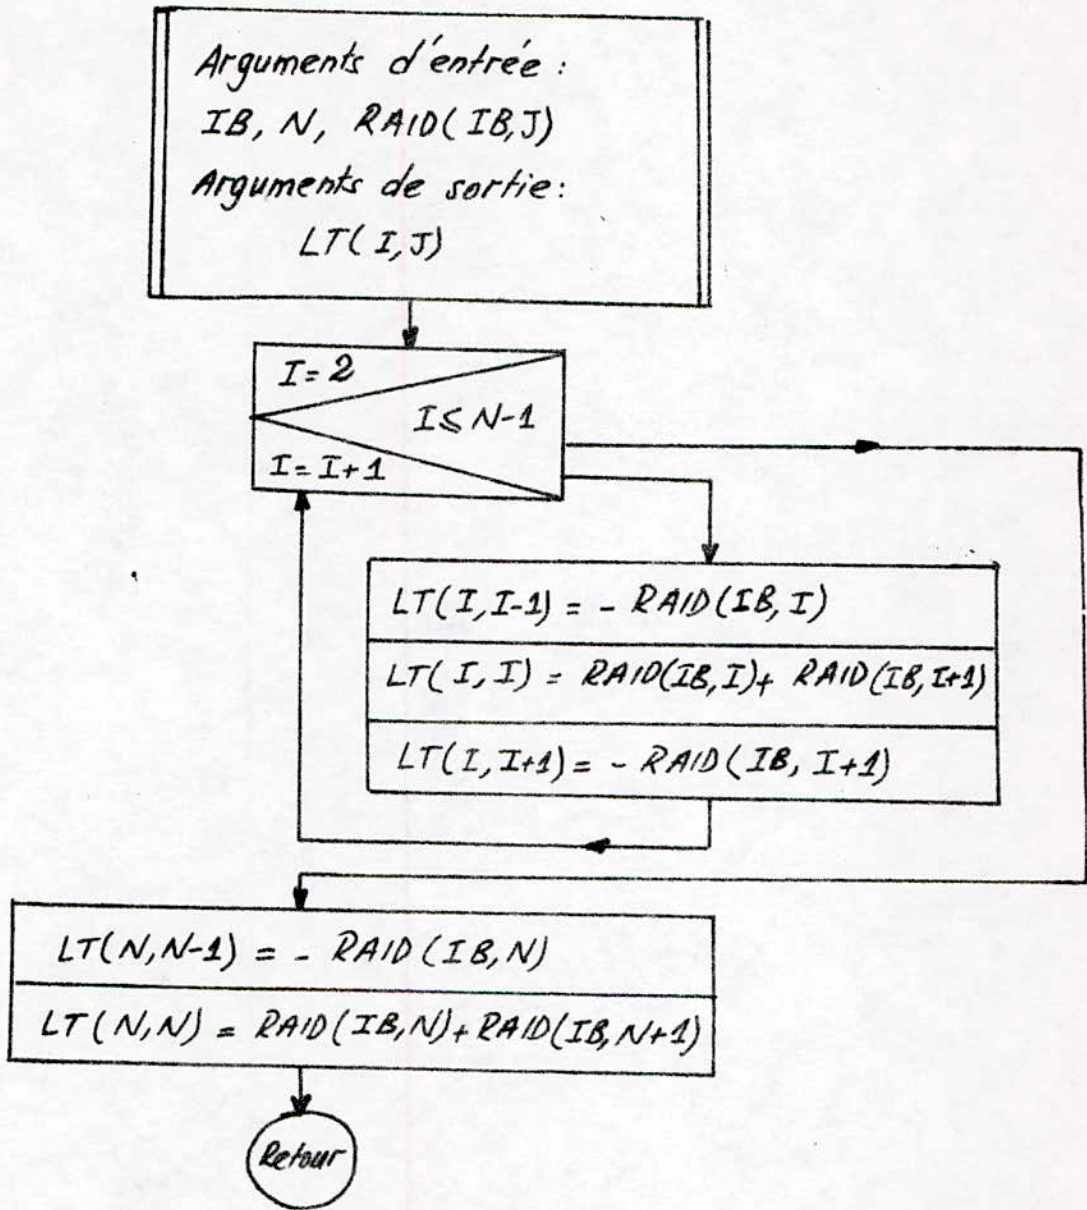 Arguments d'entrée :
IB, N, RAID(IB,J)
Arguments de sortie:
LT(I,J)
I=2
I≤N-1
I=I+1
LT(I,I-1) = - RAID(IB,I)
LT(I,I) = RAID(IB,I)+ RAID(IB,I+1)
LT(I,I+1) = - RAID(IB, I+1)
LT(N,N-1) = - RAID(IB,N)
LT(N,N) = RAID(IB,N)+RAID(IB,N+1)
Retour